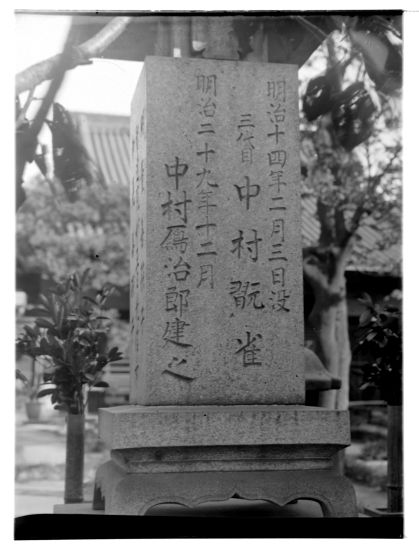 明治十四年二月三日没
三代目 中村翫雀
明治二十九年十二月
中村鴈治郎建之